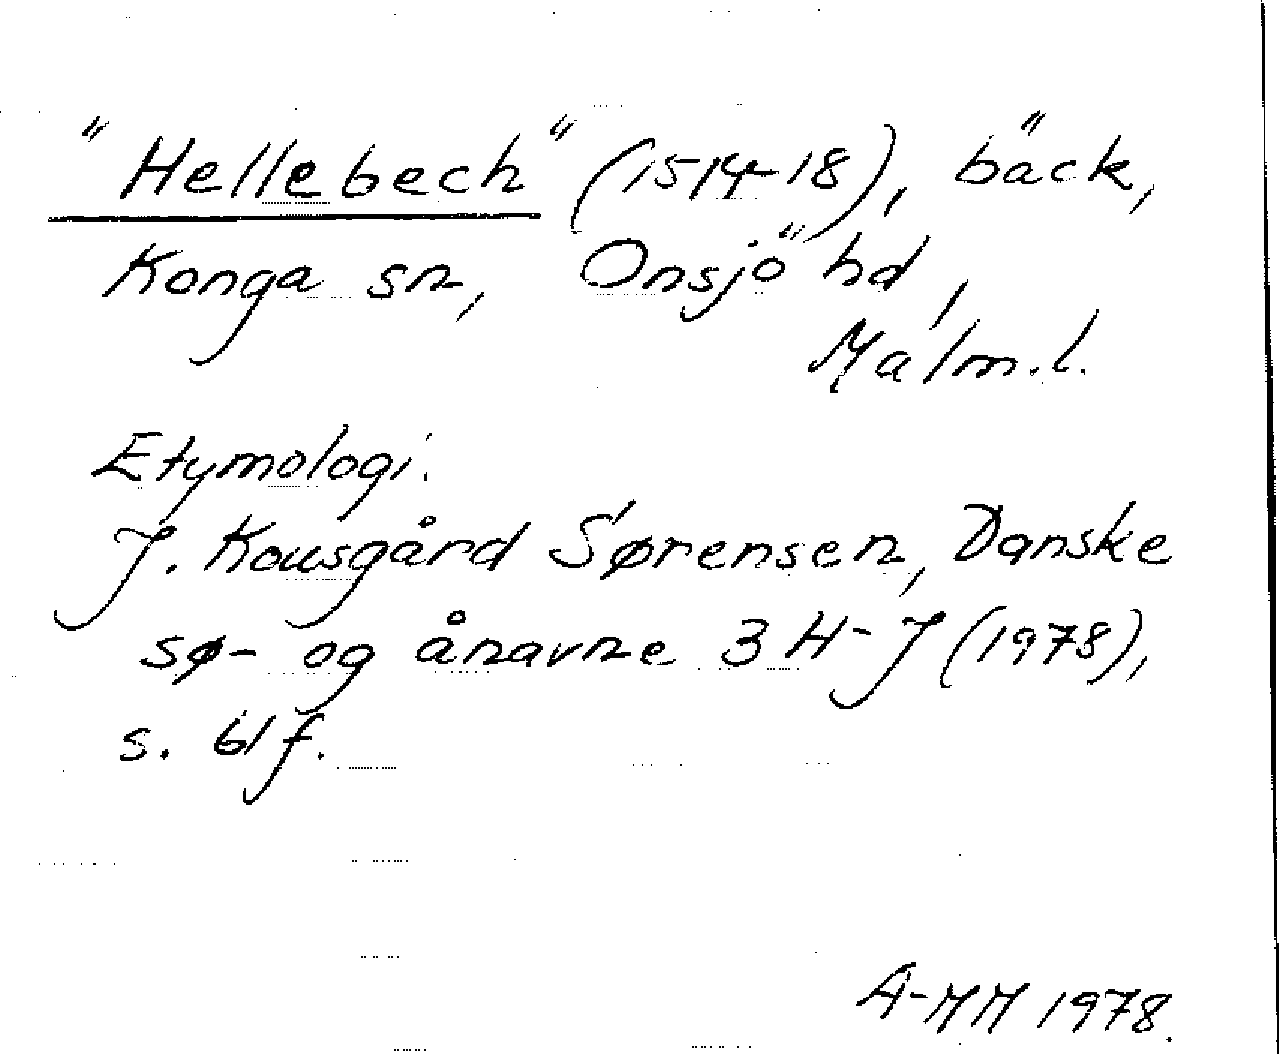 "Hellebech" (1514-18), bäck,
Konga sn, Onsjö hd,
Malm.l.
Etymologi.
J. Kousgård Sørensen, Danske
sø- og ånavne 3 H-J (1978),
s. 61f.
A-MM 1978.